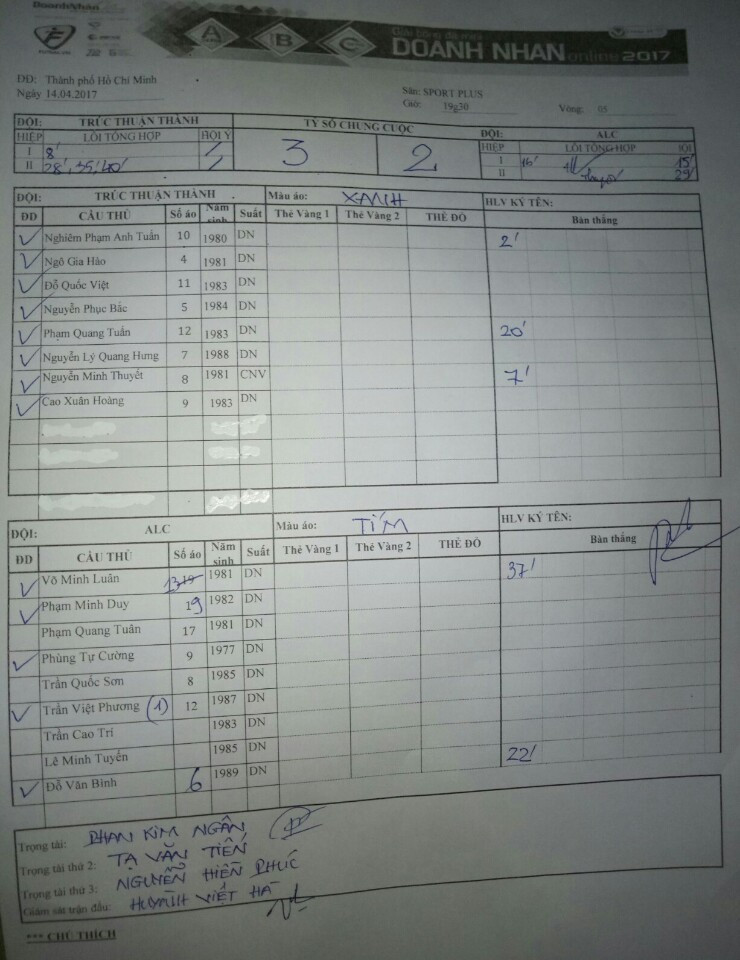 DoanhNhân
A B C
Giải bóng đá mini
DOANH NHAN online 2017
DĐ: Thành phố Hồ Chí Minh
Ngày 14.04.2017
Sân: SPORT PLUS
Giờ: 19g30 Vòng: 05
ĐỘI: TRÚC THUẬN THÀNH TỶ SỐ CHUNG CUỘC ĐỘI: ALC
HIỆP LỖI TỔNG HỢP HỘI Ý 3 2 HIỆP LỖI TỔNG HỢP
I 8' I 16' 15'
II 28', 35', 40' II 29'
ĐỘI: TRÚC THUẬN THÀNH Màu áo: XANH HLV KÝ TÊN:
ĐD CẦU THỦ Số áo Năm sinh Suất Thẻ Vàng 1 Thẻ Vàng 2 THẺ ĐỎ Bàn thắng
Nghiêm Phạm Anh Tuấn 10 1980 DN 2'
Ngô Gia Hào 4 1981 DN
Đỗ Quốc Việt 11 1983 DN
Nguyễn Phục Bắc 5 1984 DN
Phạm Quang Tuấn 12 1983 DN 20'
Nguyễn Lý Quang Hưng 7 1988 DN
Nguyễn Minh Thuyết 8 1981 CNV 7'
Cao Xuân Hoàng 9 1983 DN
ĐỘI: ALC Màu áo: TÍM HLV KÝ TÊN:
ĐD CẦU THỦ Số áo Năm sinh Suất Thẻ Vàng 1 Thẻ Vàng 2 THẺ ĐỎ Bàn thắng
Võ Minh Luân 1981 DN 37'
Phạm Minh Duy 19 1982 DN
Phạm Quang Tuân 17 1981 DN
Phùng Tự Cường 9 1977 DN
Trần Quốc Sơn 8 1985 DN
Trần Việt Phương (1) 12 1987 DN
Trần Cao Trí 1983 DN
Lê Minh Tuyển 1985 DN 22'
Đỗ Văn Bình 6 1989 DN
Trọng tài: PHAN KIM NGÂN
Trọng tài thứ 2: TẠ VĂN TIẾN
Trọng tài thứ 3: NGUYỄN HIỀN PHÚC
Giám sát trận đấu: HUỲNH VIẾT HÀ
*** CHÚ THÍCH